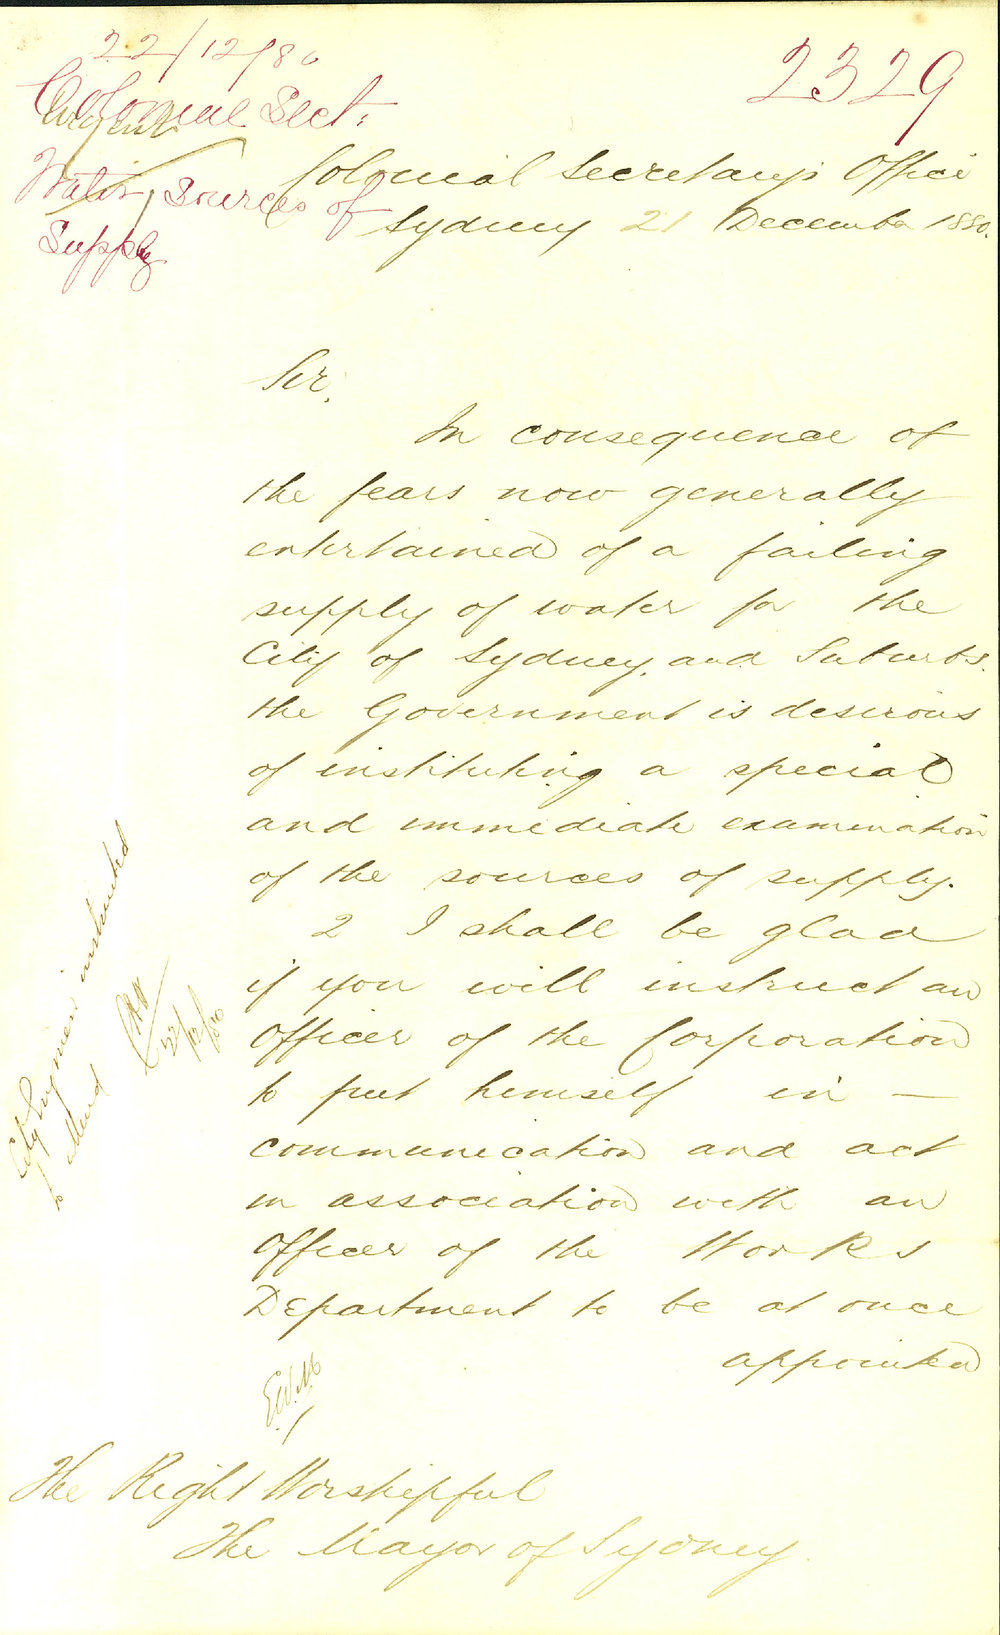 22/12/80
2329
Colonial Sect:
Urgent
Water, Sources of
Supply
Colonial Secretary's Office
Sydney 21 December 1880.
Sir,
In consequence of
the fears now generally
entertained of a failing
supply of water for the
City of Sydney, and Suburbs.
the Government is desirous
of instituting a special
and immediate examination
of the sources of supply.
2 I shall be glad
if you will instruct an
Officer of the Corporation
to put himself in —
communication and act
in association with an
Officer of the Works
Department to be at once
appointed
City Engineer instructed
to attend
22/12/80
E.W.M
The Right Worshipful
The Mayor of Sydney.